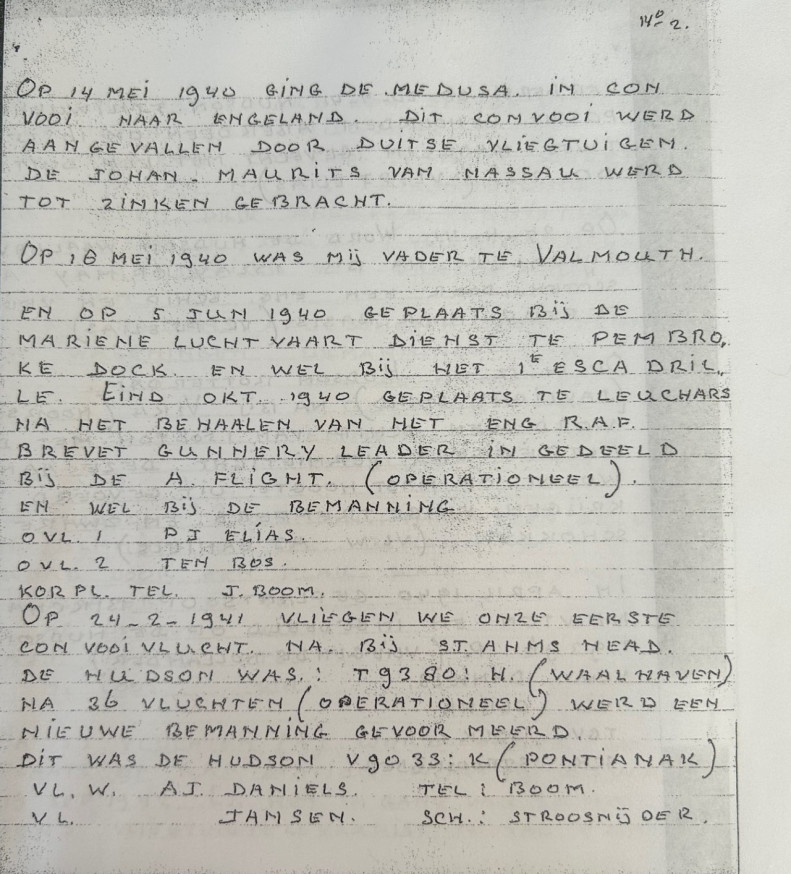 14º 2.
OP 14 MEI 1940 GING DE MEDUSA. IN CON
VOOI NAAR ENGELAND. DIT CONVOOI WERD
AANGEVALLEN DOOR DUITSE VLIEGTUIGEN.
DE JOHAN - MAURITS VAN NASSAU WERD
TOT ZINKEN GEBRACHT.
OP 18 MEI 1940 WAS MIJ VADER TE VALMOUTH.
EN OP 5 JUN 1940 GEPLAATS BIJ DE
MARIENE LUCHTVAART DIENST TE PEMBRO,
KE DOCK. EN WEL BIJ HET 1E ESCADRIL,
LE. EIND OKT. 1940 GEPLAATS TE LEUCHARS
NA HET BEHAALEN VAN HET ENG R.A.F.
BREVET GUNNERY LEADER IN GEDEELD
BIJ DE A. FLIGHT. (OPERATIONEEL).
EN WEL BIJ DE BEMANNING
OVL. 1 PJ ELÍAS.
OVL. 2 TEN BOS.
KORPL. TEL. J. BOOM.
OP 24-2-1941 VLIEGEN WE ONZE EERSTE
CONVOOIVLUCHT. NA. BIJ ST. AHMS HEAD.
DE HUDSON WAS.: T9380: H. (WAALHAVEN)
NA 36 VLUCHTEN (OPERATIONEEL) WERD EEN
NIEUWE BEMANNING GEVOORMEERD.
DIT WAS DE HUDSON V9033: K (PONTIANAK)
VL. W. AJ. DANIELS. TEL: BOOM.
VL. JANSEN. SCH.: STROOSNIJDER.